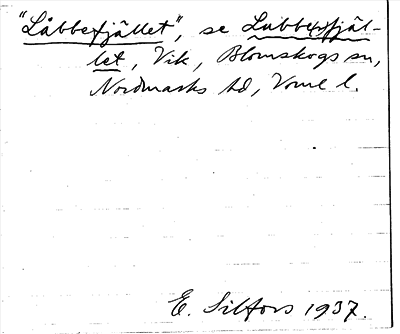 "Låbbefjället", se Labbersfjäl-
let, Vik, Blomskogs sn,
Nordmarks hd, Vrml l.
E. Silfors 1937.